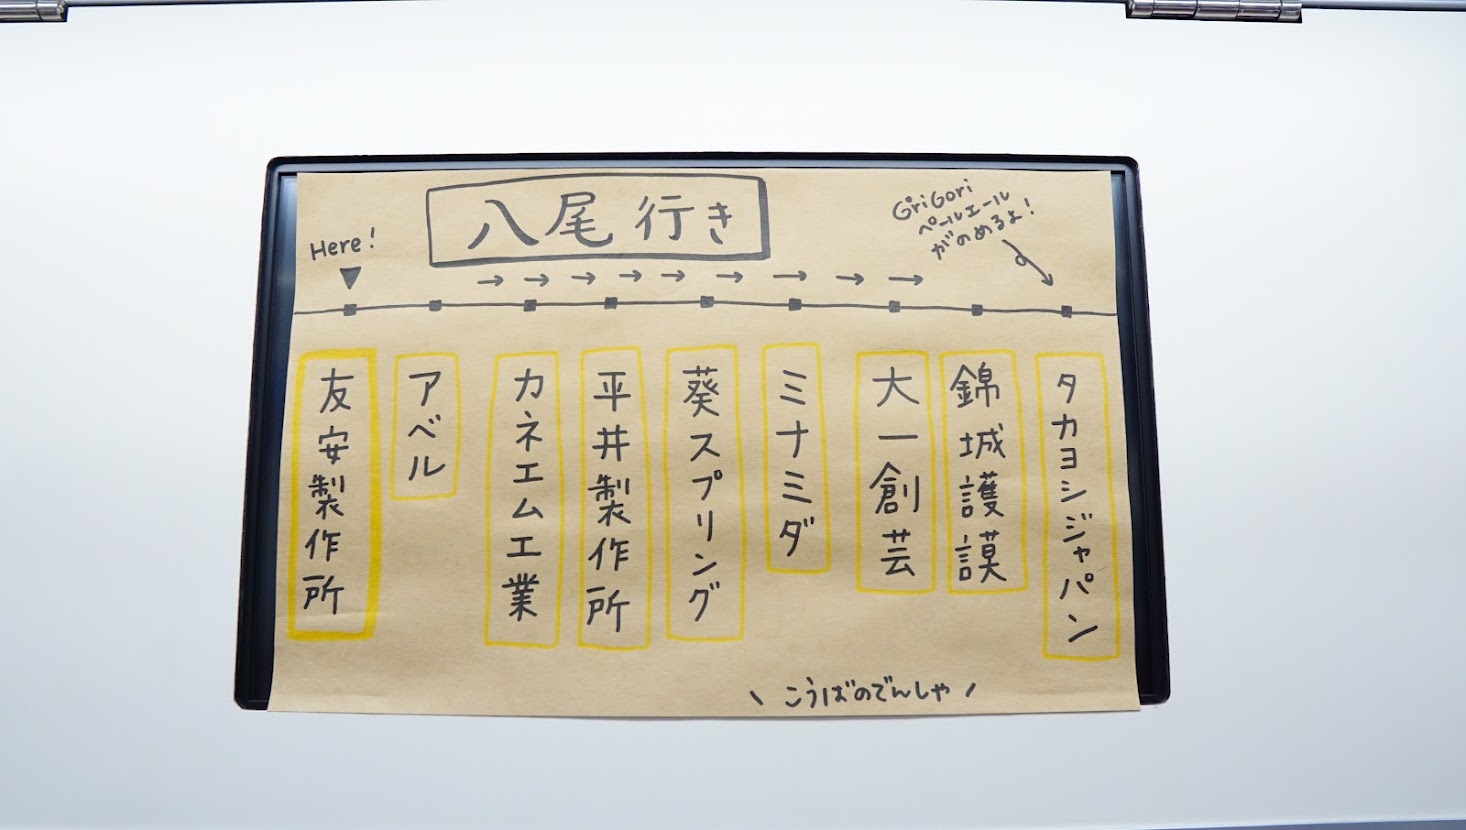 八尾行き
Here!
GriGori
ペールエール
がのめるよ!
→ → → → → → → → →
友安製作所
アベル
カネエム工業
平井製作所
葵スプリング
ミナミダ
大一創芸
錦城護謨
タカヨシジャパン
\ こうばのでんしゃ /